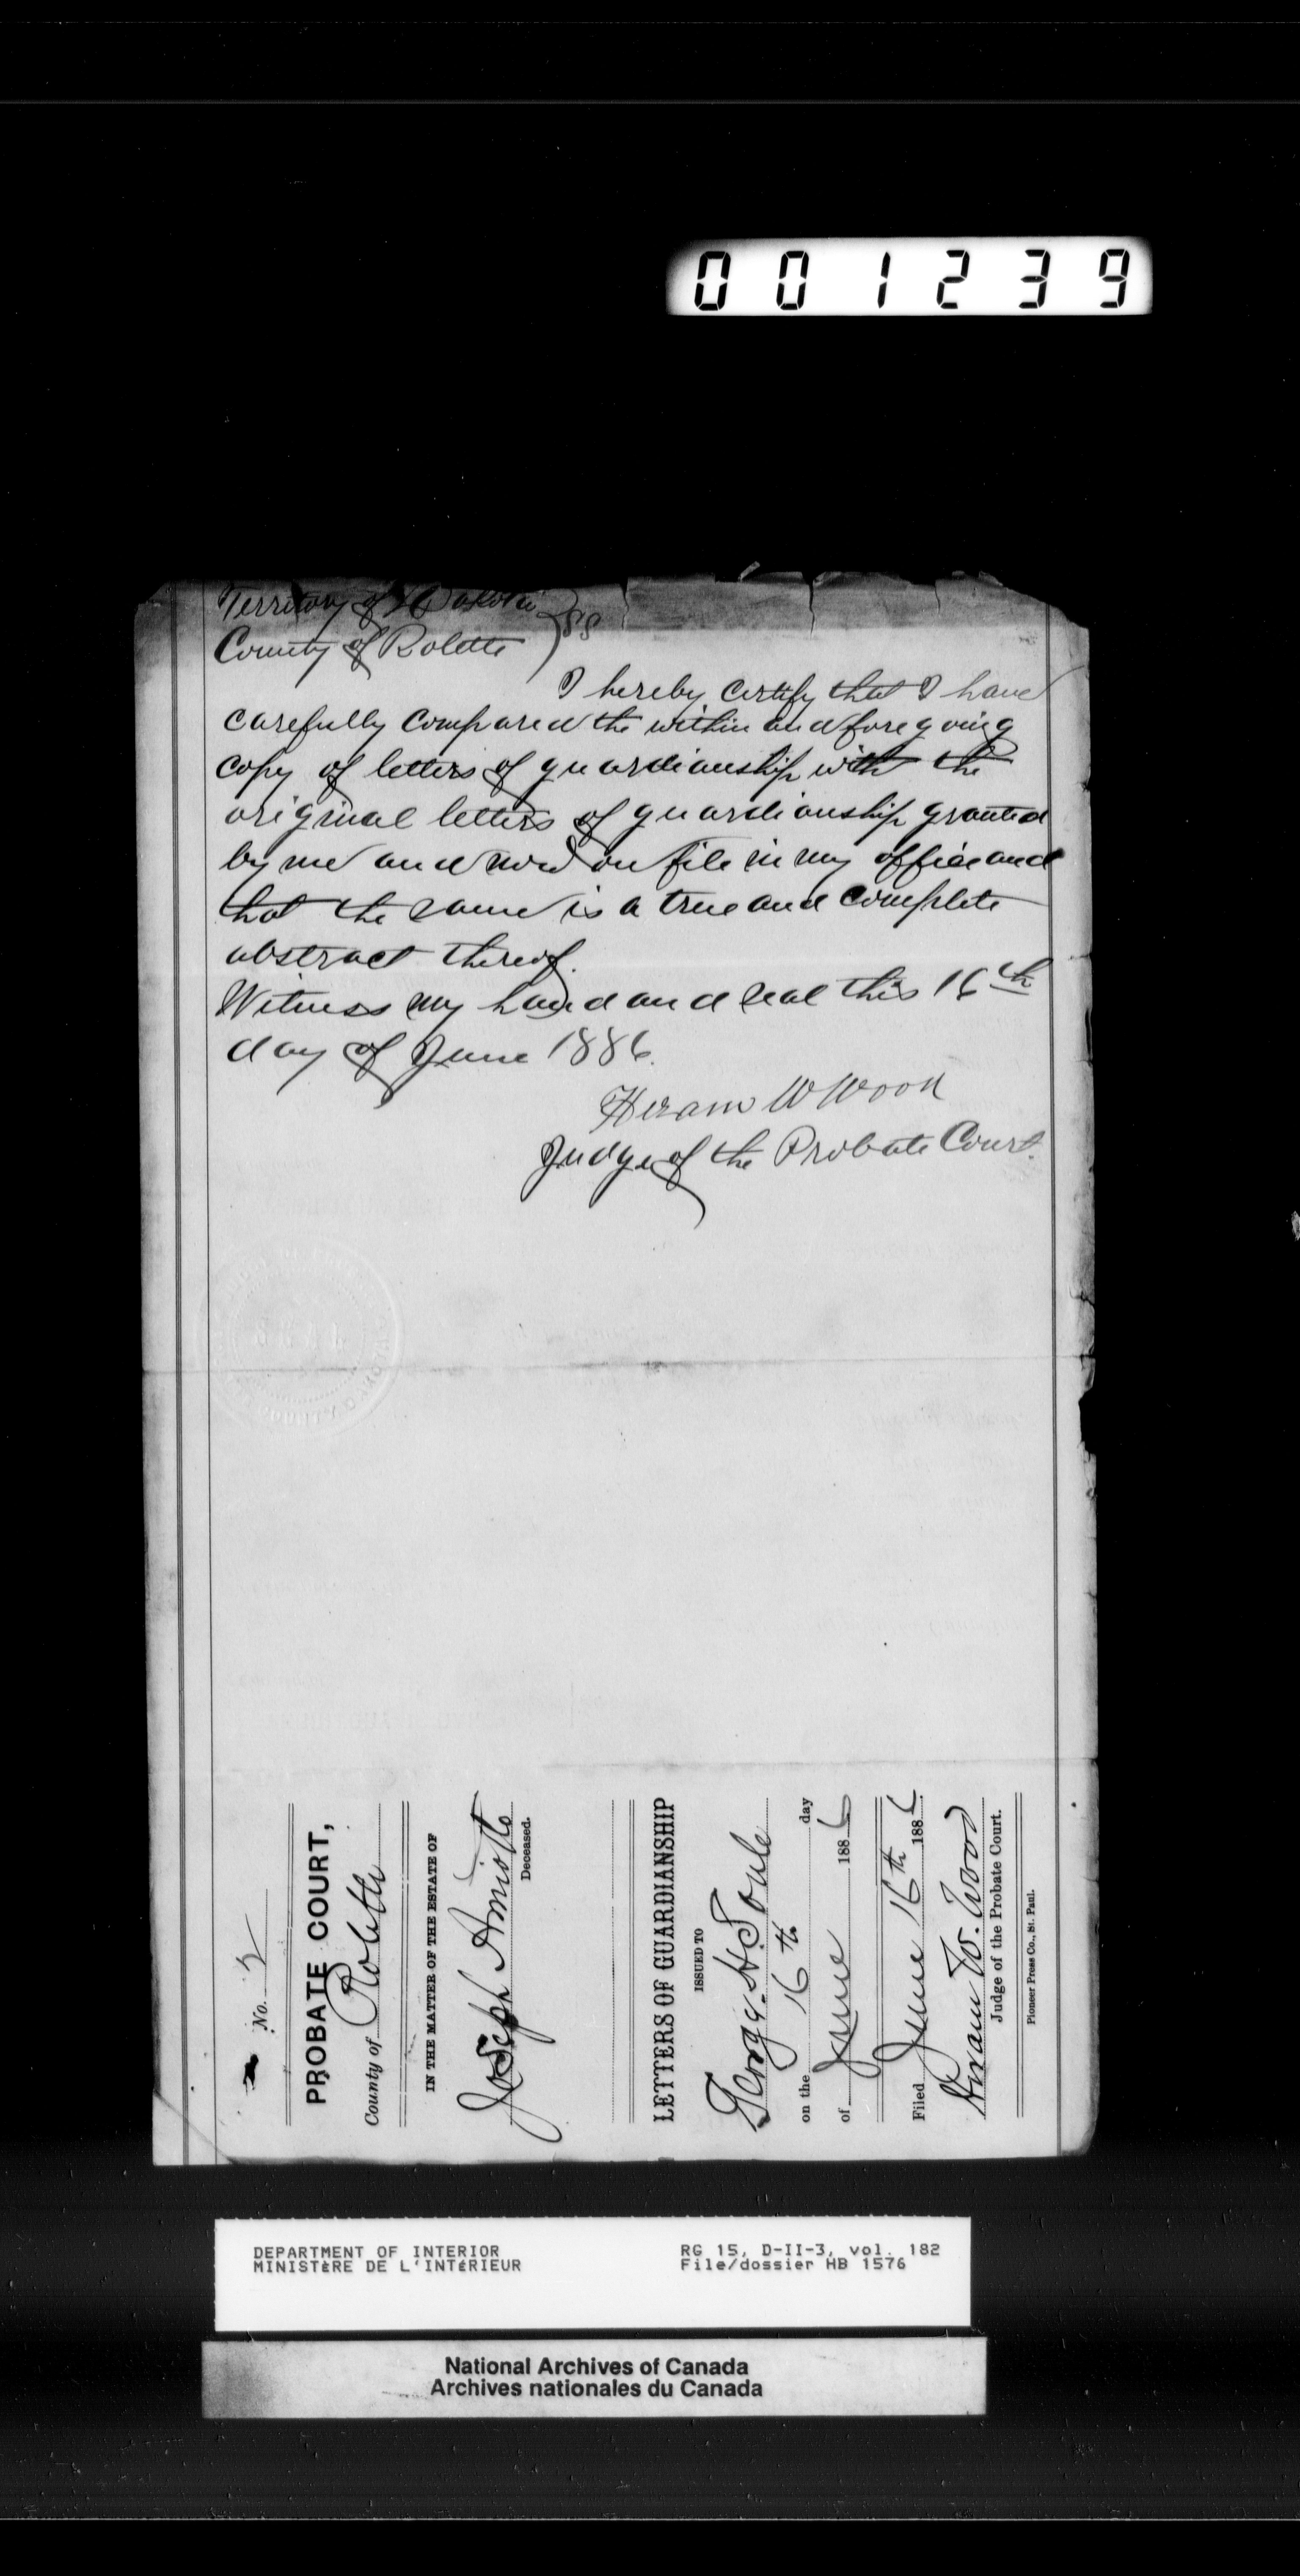 001239
Territory of Dakota } ss
County of Rolette
I hereby certify that I have
carefully compared the within and foregoing
copy of letters of guardianship with the
original letters of guardianship granted
by me and now on file in my office and
that the same is a true and complete
abstract thereof.
Witness my hand and seal this 16th
day of June 1886.
Hiram W Wood
Judge of the Probate Court.
No.
PROBATE COURT,
County of Rolette
IN THE MATTER OF THE ESTATE OF
Joseph Amiotte
Deceased.
LETTERS OF GUARDIANSHIP
ISSUED TO
George H. Soule
on the 16th day
of June 1886
Filed June 16th 1886
Hiram W. Wood
Judge of the Probate Court.
Pioneer Press Co., St. Paul.
DEPARTMENT OF INTERIOR
MINISTÈRE DE L'INTÉRIEUR
RG 15, D-II-3, vol. 182
File/dossier HB 1576
National Archives of Canada
Archives nationales du Canada